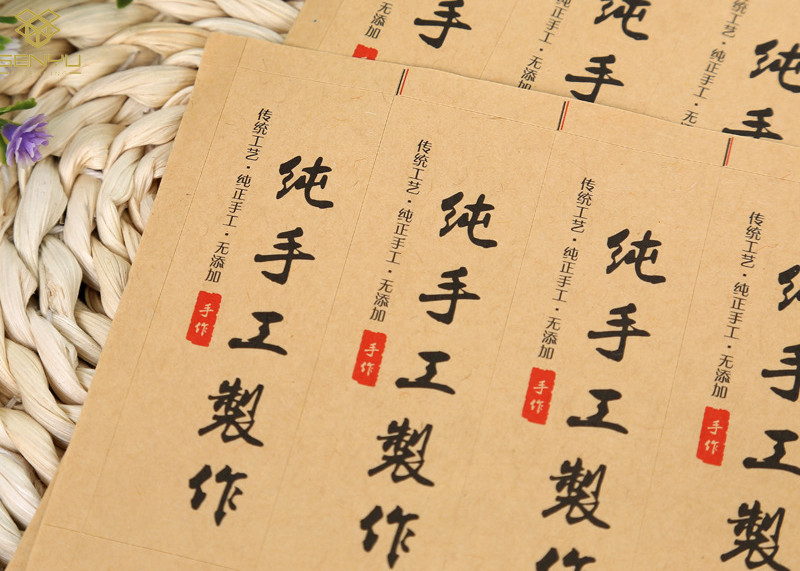 手
无添加
手
纯手
纯正手工·无添
纯手
纯手工製作
传统工艺·纯正手工·无添加
手作
纯手工製作
传统工艺·纯正手工·无添加
手作
纯手工製作
传统工艺·纯正手工·无添加
手作
纯手工製
传统工艺·纯正手工·无添加
手作